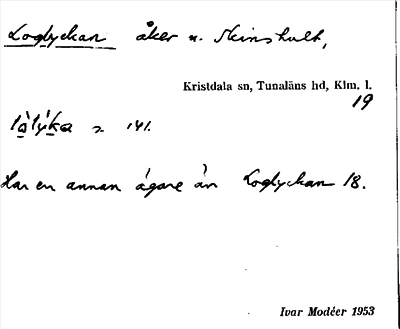 Loglyckan åker n. Skinshult,
Kristdala sn, Tunaläns hd, Klm. l.
19
141.
Har en annan ägare än Loglyckan 18.
Ivar Modéer 1953